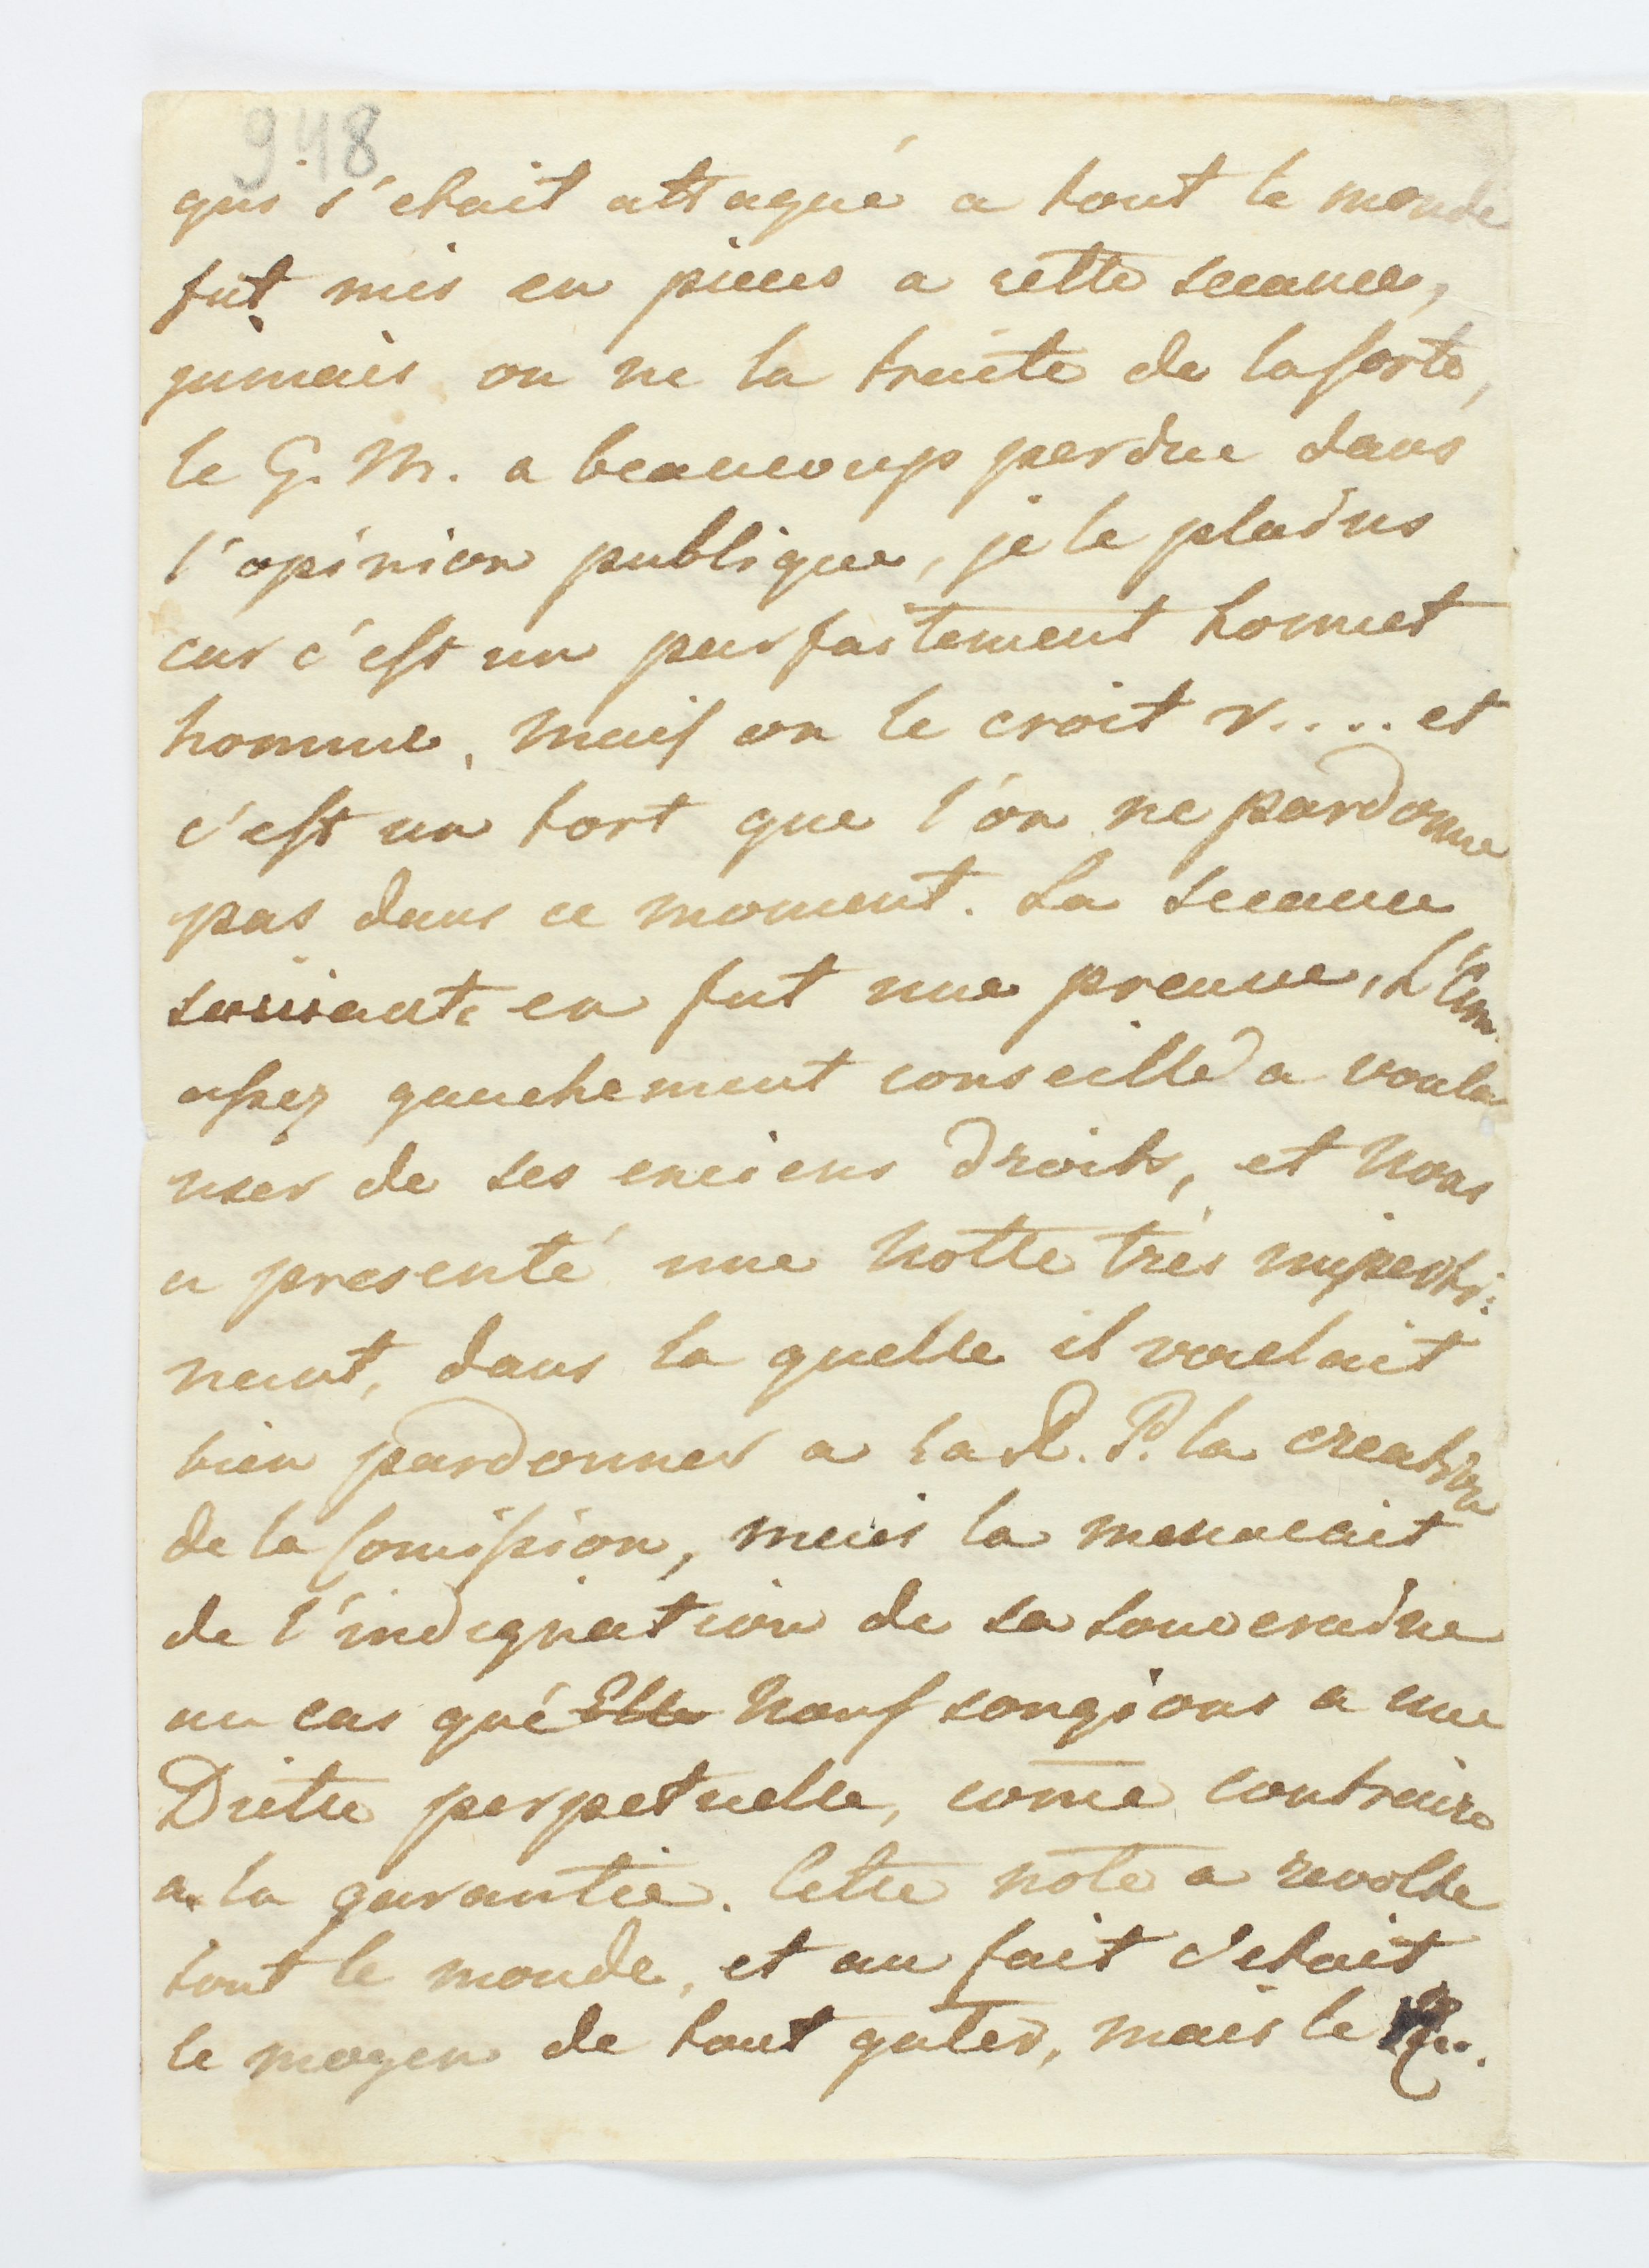 948
qui s'etait attaqué a tout le monde
fut mis en pieces a cette sceance,
jamais on ne la traite de la sorte,
le G. M. a beaucoup perdue dans
l'opinion publique, je le plains
car c'est un parfaitement honnet
homme, mais on le croit r.... et
c'est un tort que l'on ne pardonne
pas dans ce moment. La sceance
suivante en fut une preuve,
assez gauchement conseillé a voulu
user de ses enciens droits, et nous
a presenté une notte très imperti:
nent, dans la quelle il voulait
bien pardonner a la R. P. la creation
de la Comission, mais la menacait
de l'indignation de sa souveraine
au cas que Elle nous songions a une
Diette perpetuelle, come contraire
a la garantie. Cette note a revolte
tout le monde, et au fait c'etait
le moyen de tout gater, mais le